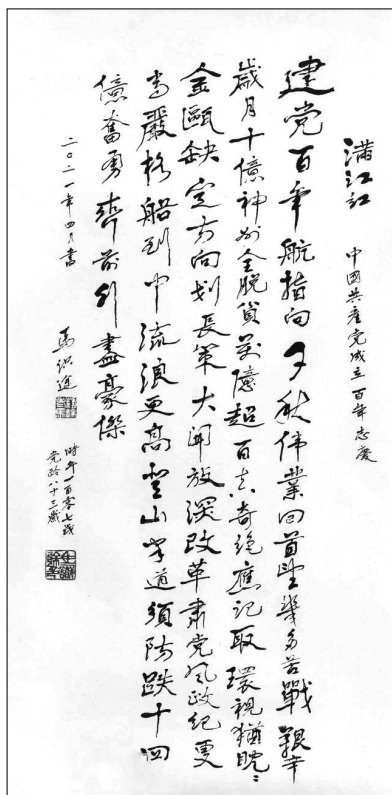 满江红 中國共產党成立百年志慶
建党百年航指向千秋伟業回首望幾多苦戰艱辛
歲月十億神州全脱貧萬億超百真奇绝應記取環視猶眈〻
金甌缺定方向划長策大開放深改革肅党风政纪更
当嚴格船到中流浪更高登山半道須防跌十四
億奮勇齊前行盡豪傑
二〇二一年四月書 馬识途
时年一百零七歲
党龄八十三歲